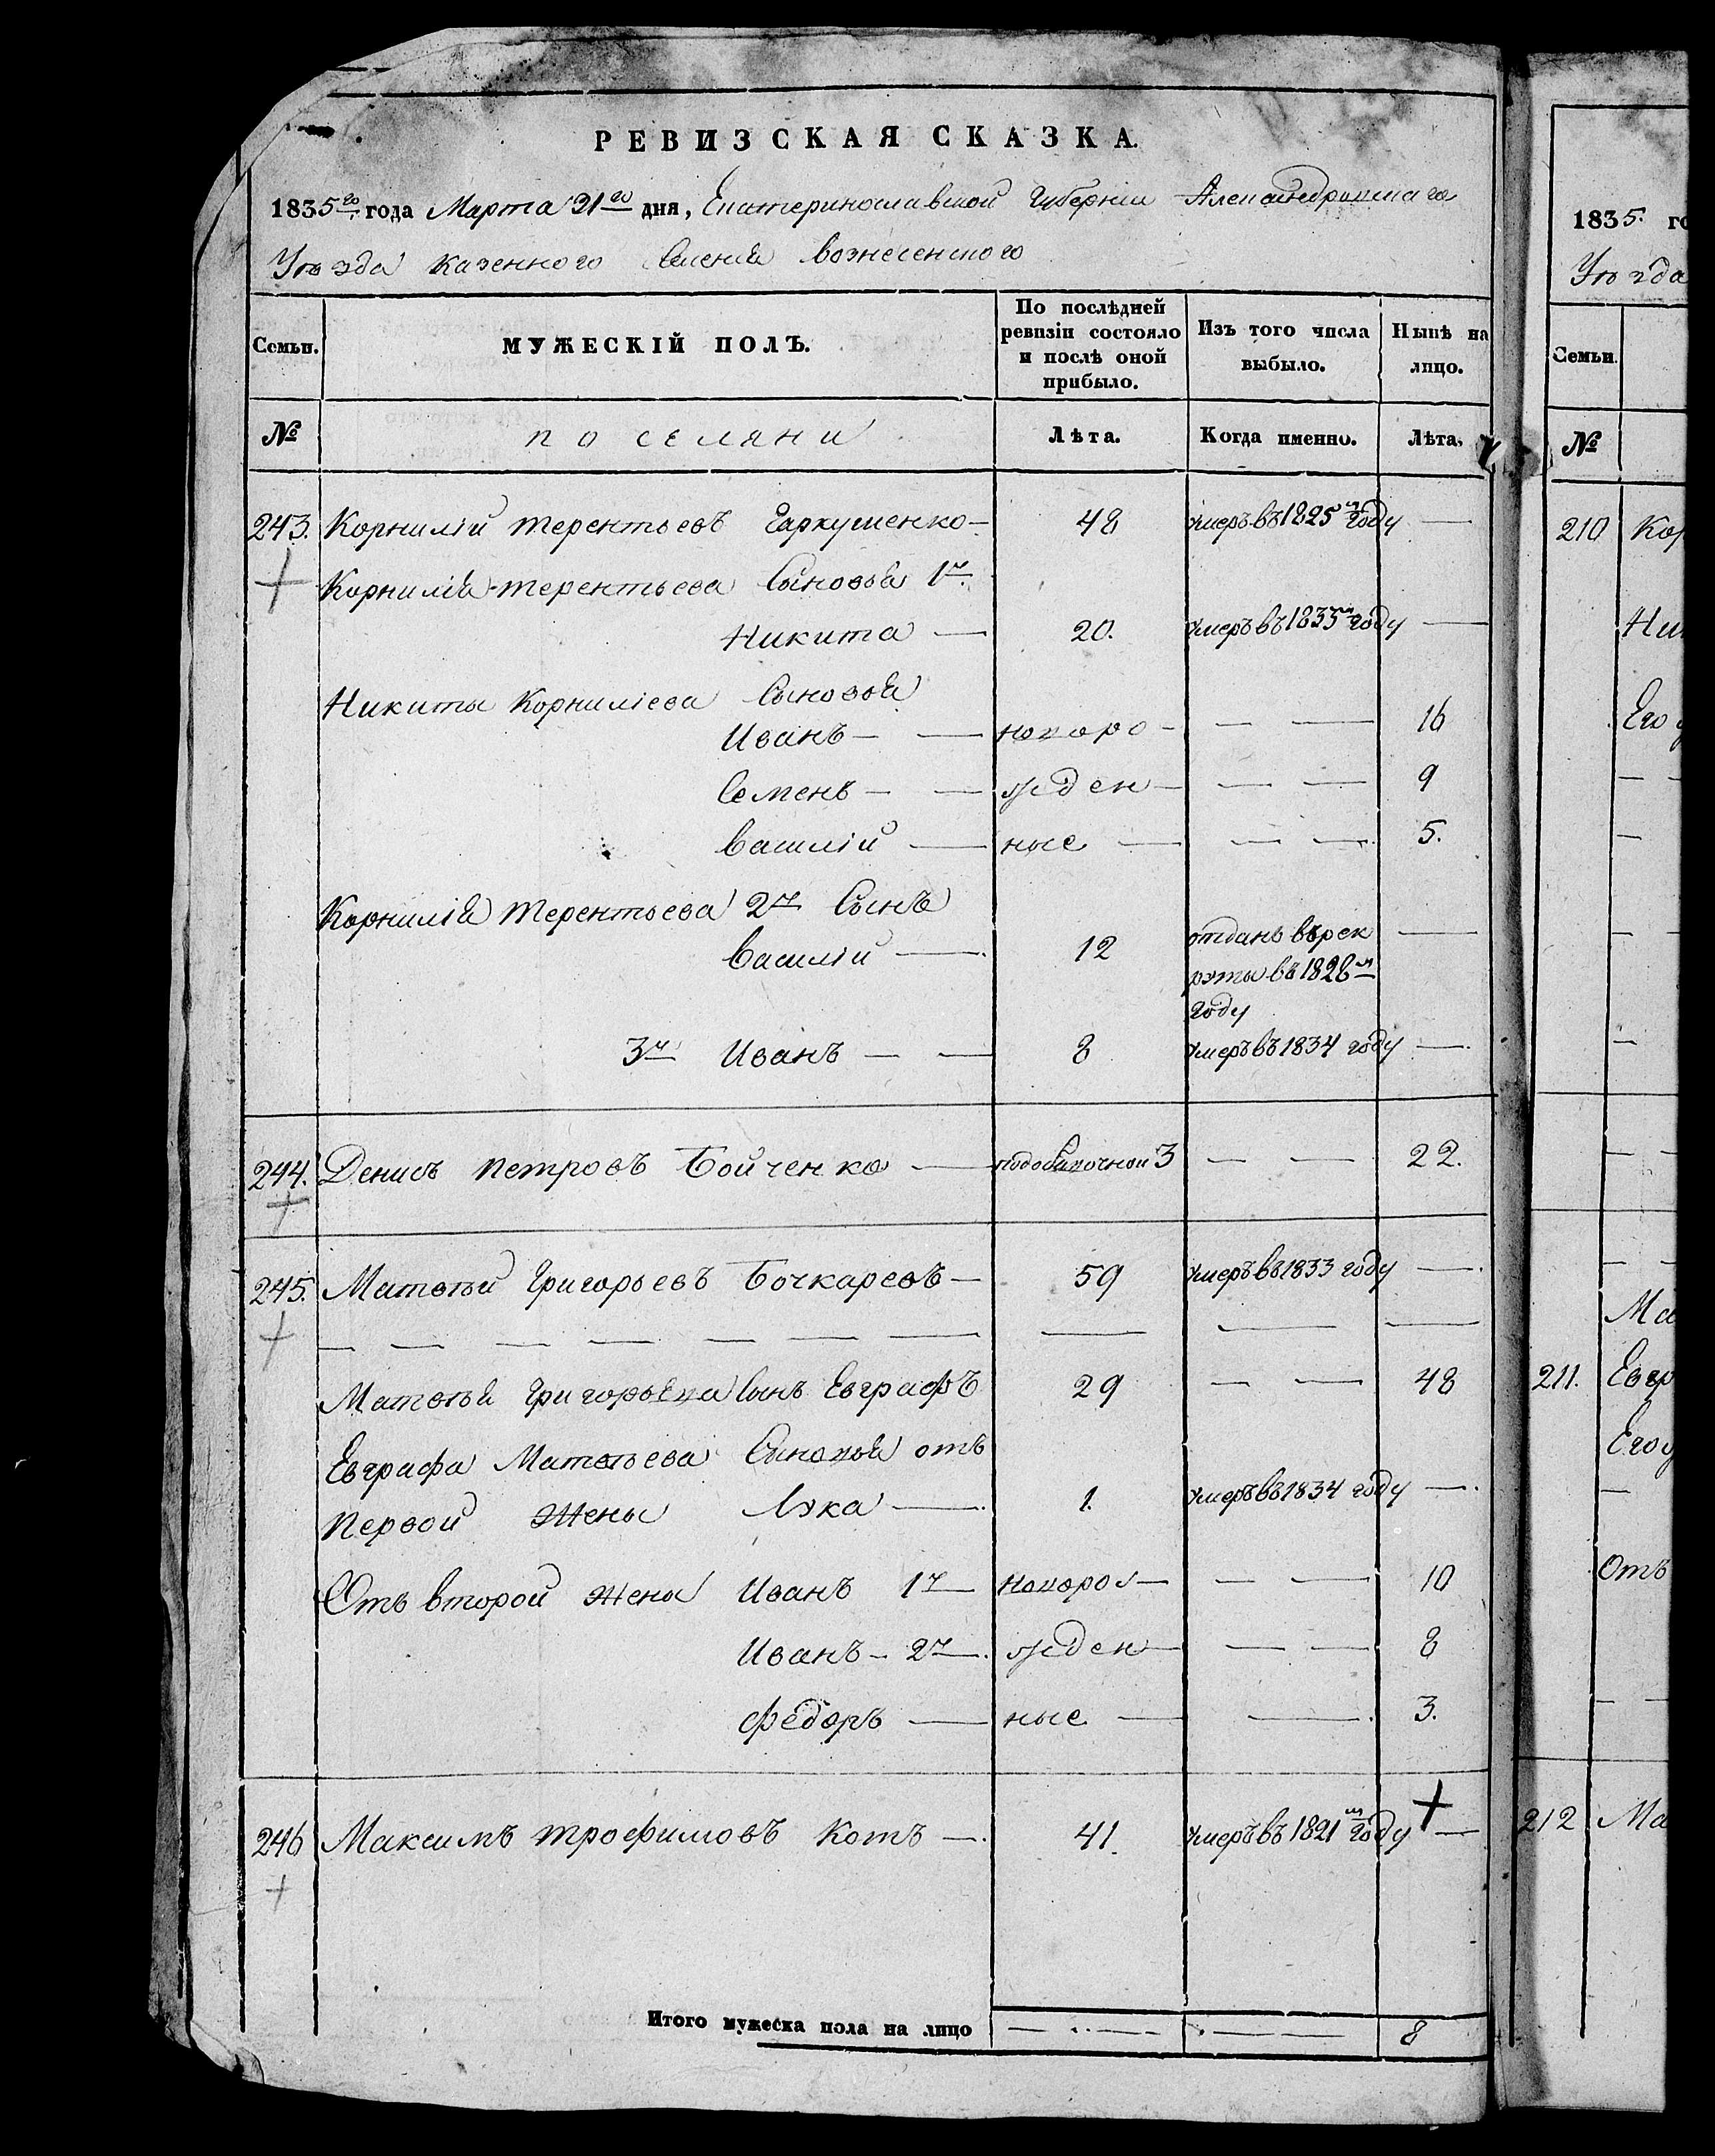 РЕВИЗСКАЯ СКАЗКА.
1835го года Марта 21го дня, Екатеринославской Губернии Александровскаго
Уезда казенного Селения вознесенского
Семьи. МУЖЕСКІЙ ПОЛЪ. По послѣдней ревизіи состояло и послѣ оной прибыло. Изъ того числа выбыло. Нынѣ на лицо.
№ поселяни Лѣта. Когда именно. Лѣта.
243. Корнилій терентьевъ Гаркушенко 48 умеръ въ 1825м году
Корнилія терентьева Сыновья 1й
Никита 20. умеръ въ 1835м году
Никиты Корниліева Сыновья
Иванъ новоро 16
Семенъ жден 9
Василій ные 5.
Корнилія терентьева 2й Сынъ
Василій 12 отданъ в рек
руты въ 1828м
году
3й Иванъ 8 умеръ въ 1834 году
244. Денисъ петровъ Бойченко 3 22.
245. Матвѣй Григорьевъ Бочкаревъ 59 умеръ въ 1833 году
Матвѣя Григорьева Сынъ Евграфъ 29 48
Евграфа Матвѣева Сыновья отъ
первой жены Лука 1. умеръ въ 1834 году
Отъ второй жены Иванъ 1й новорож 10
Иванъ 2й жден 8
федоръ ные 3.
246 Максимъ трофимовъ Котъ 41. умеръ въ 1821м году
Итого мужеска пола на лицо 8
1835. го
Уезда
Семьи.
№
210 Кор
Ник
Его
Ма
211. Евгр
Его
Отъ
212 Ма